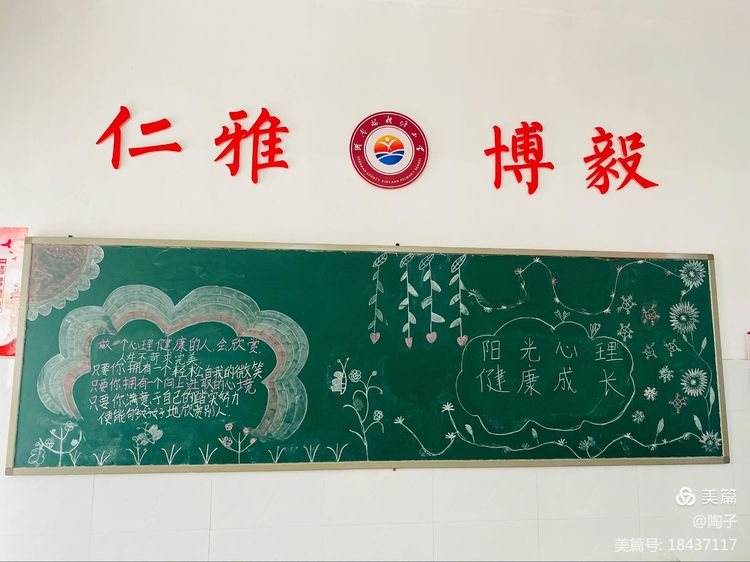 仁雅 博毅
做一个心理健康的人,会欣赏
人生不可求完美
只要你拥有一个轻松自我的微笑
只要你拥有一个向上进取的心境
只要你满意于自己的踏实努力
便能够好好地欣赏别人
阳光心理
健康成长
美篇
@陶子
美篇号: 18437117